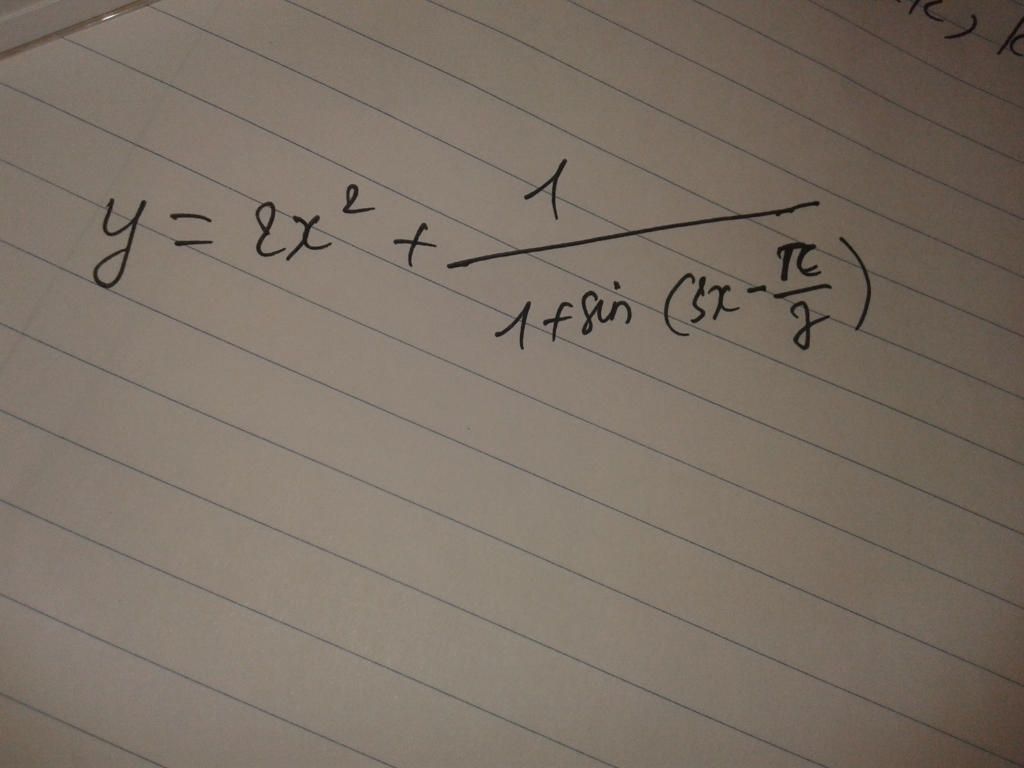 y = 2x² + 1/(1 + sin(3x - π/2))